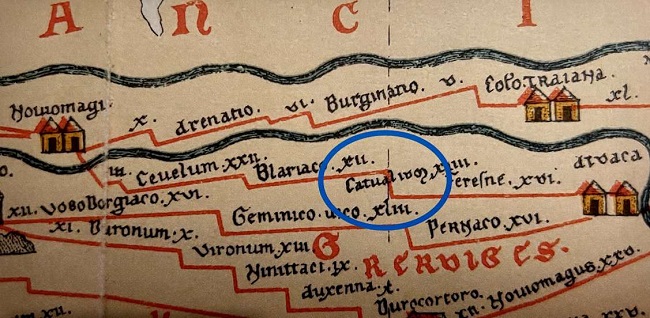 A N C I
Nouiomagi. x. Arenatio. vi. Burginatio. v. Colo Traiana xl.
iii. Ceuelum. xxii. Blariaco. xii. Catualium. xiiii. Feresne. xvi. atuaca
xii. Vosoborgiaco. xvi. Geminico. uico. xliii. Pernaco. xvi.
xi. Buronum. x. Vironum. xiii G
Ninittaci. ix. RERVIGES.
Auxenna. t. Durocortoro. xii. Nouiomagus. xxv.
xii.